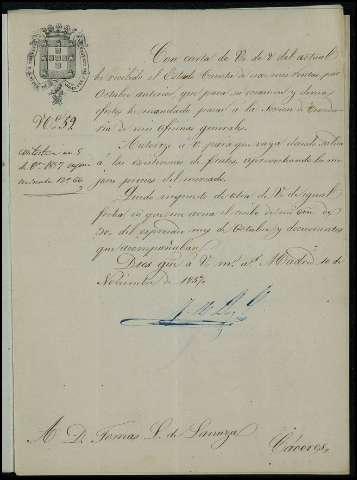 Con carta de V. de 2 del actual
he recibido el Estado Cuenta de sus mis rentas por
Octubre anterior, que para su examen y demas
efectos he mandado pasar a la Seccion de
ria de mis oficinas generales.
Autorizo a V. para que vaya dando salida
a las existencias de frutos, aprovechando los me
jores precios del mercado.
Quedo impuesto de otra de V. de igual
fecha en que me avisa el recibo de mi
30 del espresado mes de Octubre y documentos
que acompañaban.
Dios gue. a V. ms. as. Madrid 10 de
Noviembre de 1857.
Nº 52
A D. Tomas L. de Lanuza
Cáceres,